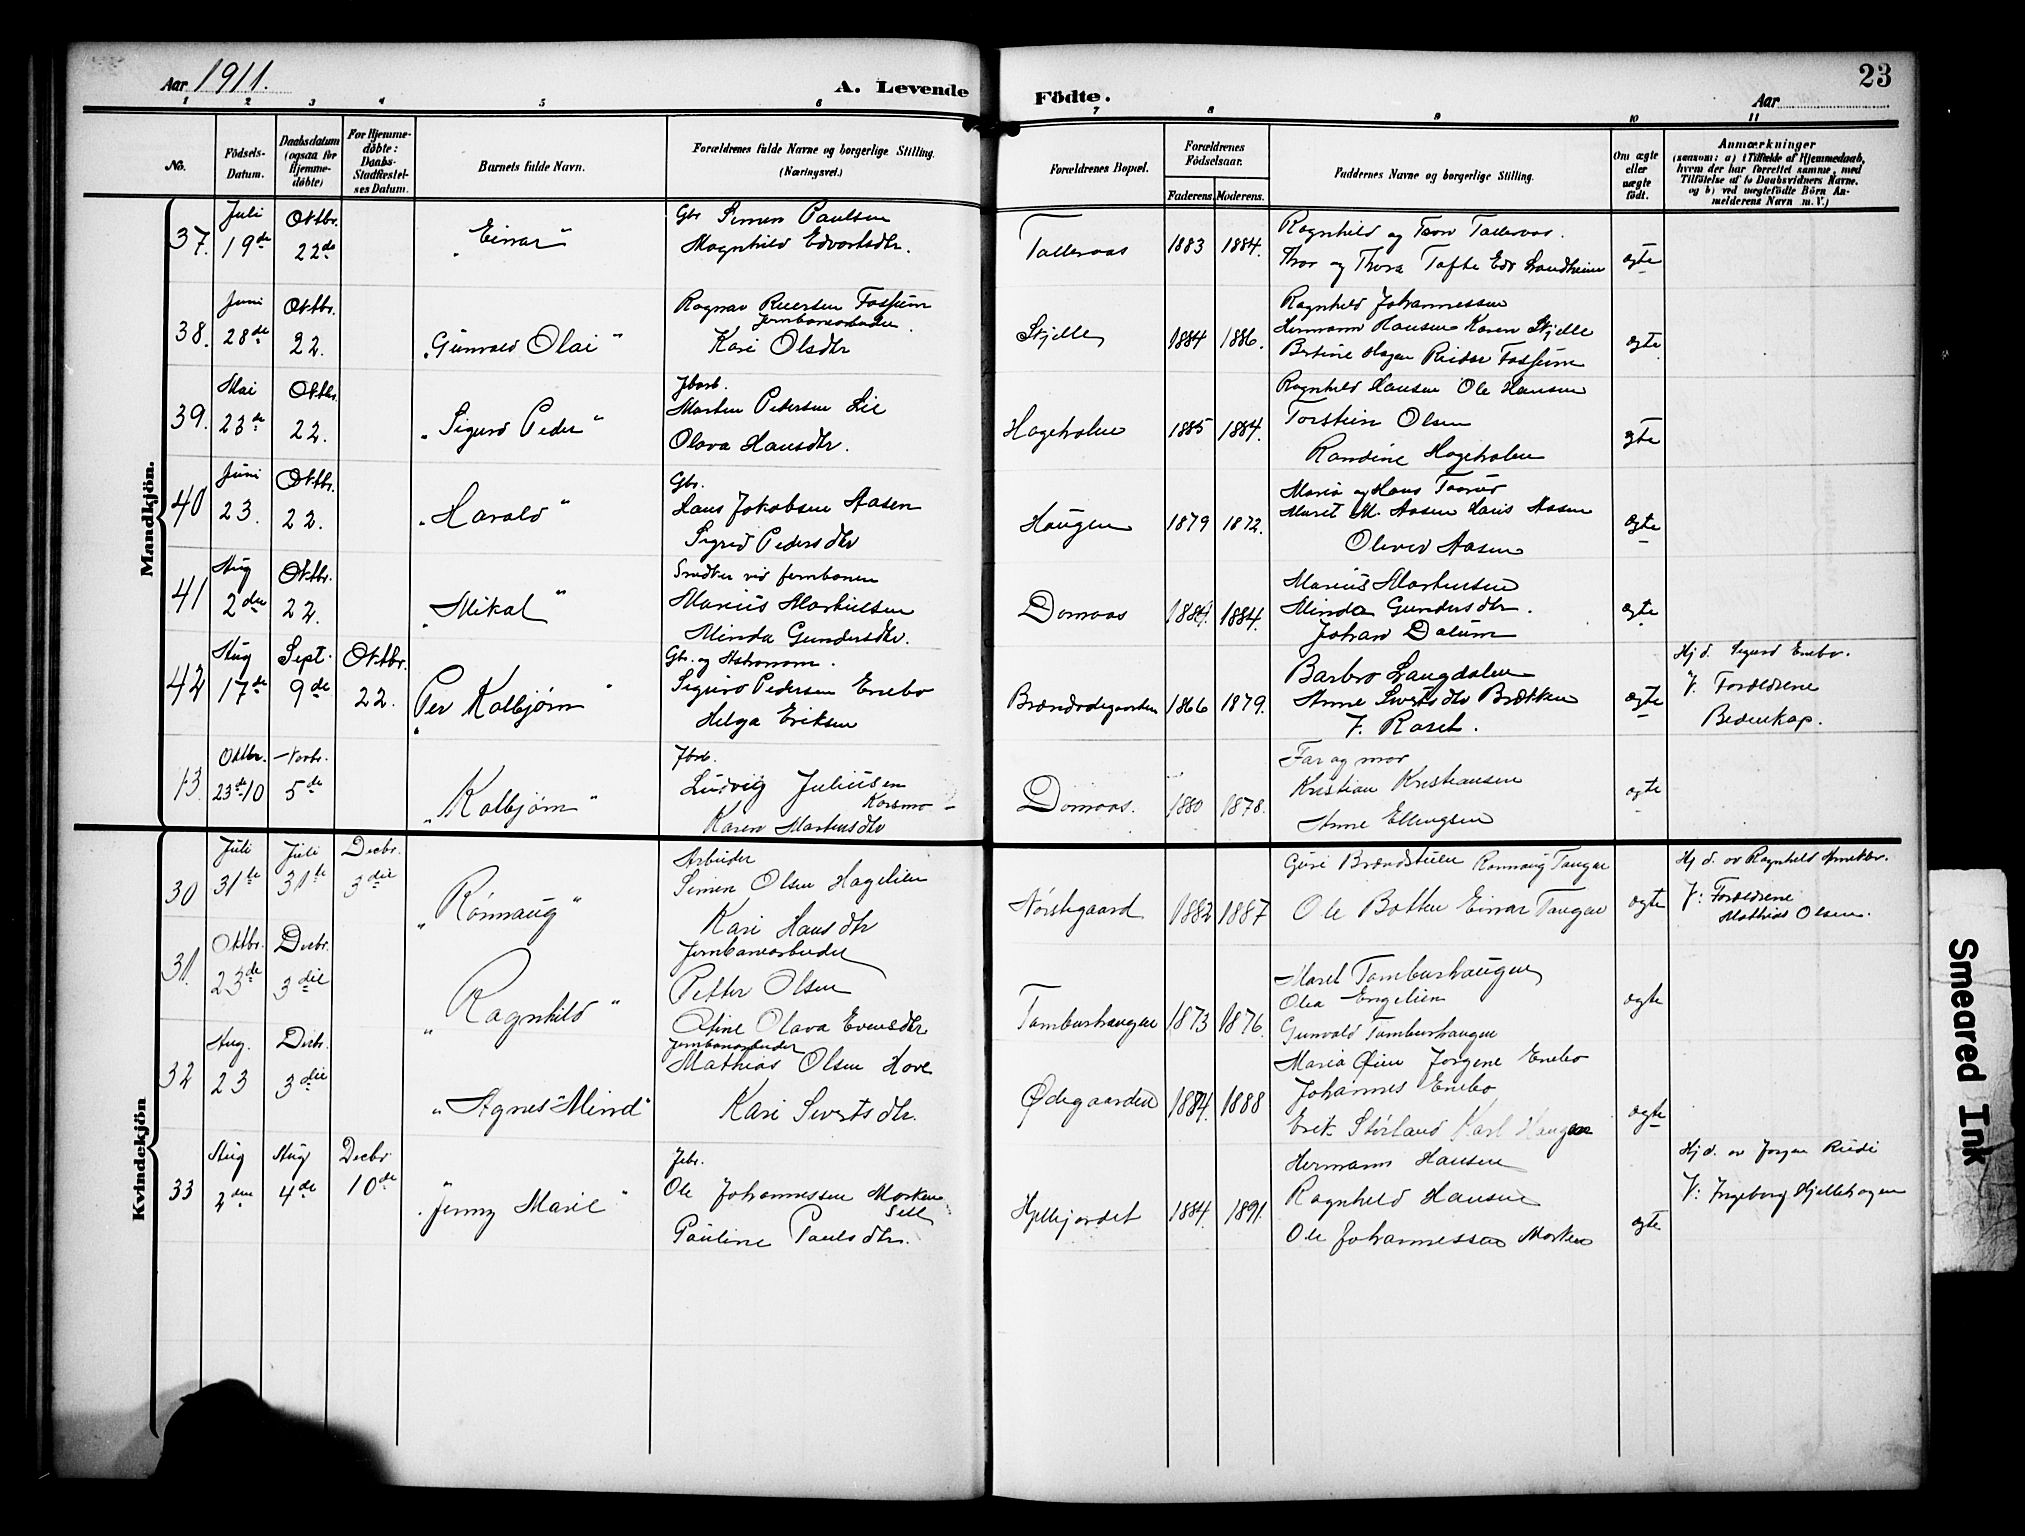 Aar 1911.
A. Levende Födte.
Aar
23
1 2 3 4 5 6 7 8 9 10 11
No.
Födsels-Datum.
Daabsdatum (ogsaa for Hjemme-döbte)
For Hjemme-döbte: Daabs-Stadfæstel-ses Datum.
Barnets fulde Navn.
Forældrenes fulde Navne og borgerlige Stilling. (Næringsvei.)
Forældrenes Bopæl.
Forældrenes Födselsaar.
Faderens. Moderens.
Faddernes Navne og borgerlige Stilling.
Om ægte eller uægte födt.
Anmærkninger
(saasom: a) i Tilfælde af Hjemmedaab, hvem der har forrettet samme, med Tilföielse af to Daabsvidners Navne, og b) ved uægtefödte Börn An-melderens Navn m. V.)
Mandkjön.
37. Juli 19de Oktbr. 22de "Einar" Gbr Simen Paulsen
Magnhild Edvartsdtr. Talleraas 1883 1884. Ragnhild og Talleraas.
Thor og Thora Tofte Edv Landheim ægte
38. Juni 28de Oktbr. 22. "Gunvald Olai" Ragnar Fossum
Jernbanearbeider
Kari Olsdtr Skjelle 1884 1886. Ragnhild Johannessen
Hermann Hansen Karen Skjelle
Bertine Hagen Reidar Fossum ægte
39. Mai 23de Oktbr. 22. "Sigurd Peder" Jbarb.
Morten Pedersen Lie
Olava Hansdtr. Hageholen 1885 1884. Ragnhild Hansen Ole Hansen
Torstein Olsen
Randine Hageholen ægte
40 Juni 23. Oktbr. 22. "Harald" Gbr.
Hans Jakobsen Aasen
Sigrid Pedersdtr Haugen 1879 1872. Maria og Hans
Marit M. Aasen Hans Aasen
Oliver Aasen ægte
41 Aug 2den Oktbr. 22. "Mikal" Smed ved jernbanen
Marius Martinsen
Minda Gundersdtr. Domaas 1884. 1884. Marius Martinsen
Minda Gundersdtr.
Johan Dalum ægte
42 Aug 17de Sept. 9de Oktbr. 22. "Per Kolbjørn" Gbr. og Astronom.
Sigurd Pedersen Enebo
Helga Eriksen 1866 1879. Barbro Langdalen
Anne Sivertsdtr Brækken
J. Raset. ægte Hj d. Sigurd Enebo.
V. Forældrene
Bedenkap.
13. Oktbr. 23de 10 Novbr. 5de "Kolbjørn" Jbrb.
Ludvig Juliusen
Korsmo
Karen Martinsdtr Domaas. 1880 1878. Far og mor
Kristian Kristiansen
Anne Ellingsen ægte
Kvindekjön
30 Juli 31te Juli 31te Decbr. 3die "Rønnaug" Arbeider
Simen Olsen Hagelien
Kari Hansdtr Norstegaard 1882 1887 Guri Brændstuen Rønnaug Tangen
Ole Botten Einar Tangen ægte Hj d. av Ragnhild
V: Forældrene
Mathias Olsen.
31. Oktbr. 23de Decbr. 3die "Ragnhild" Jernbanearbeider
Petter Olsen
Olava Evensdtr Tamburhaugen 1873 1876. Marit Tamburhaugen
Olea Engelien
Gunvald Tamburhaugen ægte
32 Aug. 23 Decbr. 3die "Agnes Mind" Jernbanearbeider
Mathias Olsen Hove
Kari Sivertsdtr. Ødegaarden 1884. 1888 Maria Øien Jørgene Enebo
Johannes Enebo
Erik Storland Karl Haugen ægte
33 Aug 2den Aug 4de Decbr 10de "Jenny Marie" Jebr.
Ole Johannessen Morken
Sell
Pauline Paulsdtr. Hjellejordet 1884. 1891. Hermann Hansen
Ragnhild Hansen
Ole Johannessen Morken ægte Hj d. av Jørgen
V: Ingeborg Hjellehagen
Smeared Ink